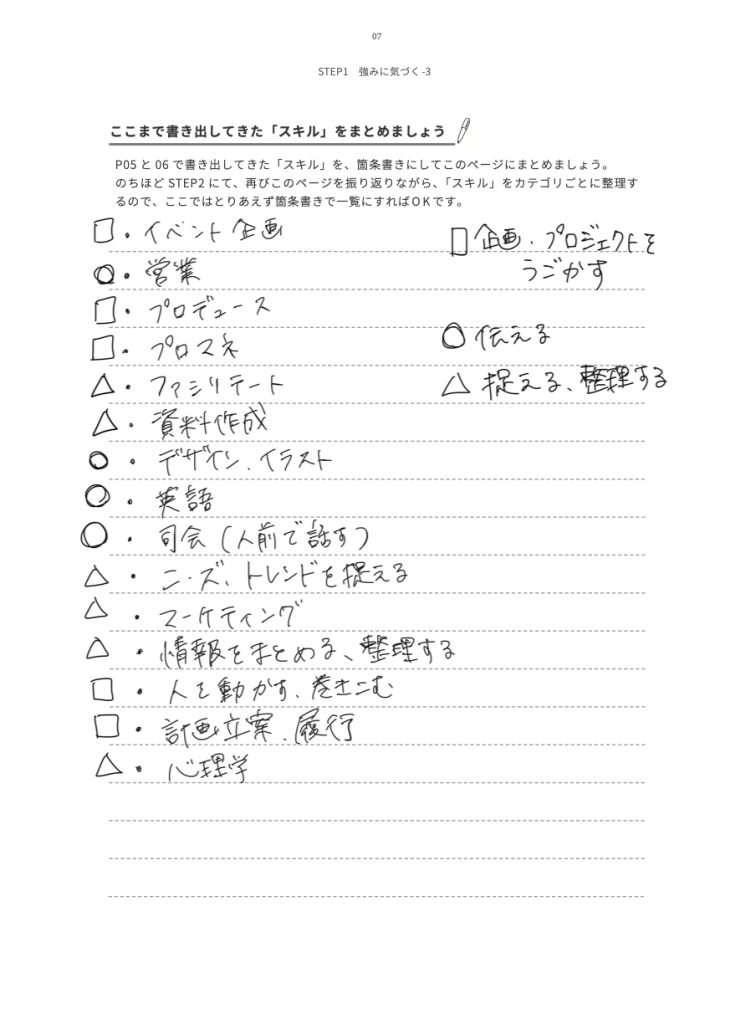 07
STEP1 強みに気づく-3
ここまで書き出してきた「スキル」をまとめましょう
P05 と 06 で書き出してきた「スキル」を、箇条書きにしてこのページにまとめましょう。
のちほど STEP2 にて、再びこのページを振り返りながら、「スキル」をカテゴリごとに整理す
るので、ここではとりあえず箇条書きで一覧にすればOKです。
□・イベント企画
○・営業
□・プロデュース
□・プロマネ
△・ファシリテート
△・資料作成
○・デザイン、イラスト
○・英語
○・司会（人前で話す）
△・ニーズ、トレンドを捉える
△・マーケティング
△・情報をまとめる、整理する
□・人を動かす、巻きこむ
□・計画立案、履行
△・心理学
□ 企画・プロジェクトを
うごかす
○ 伝える
△ 捉える、整理する